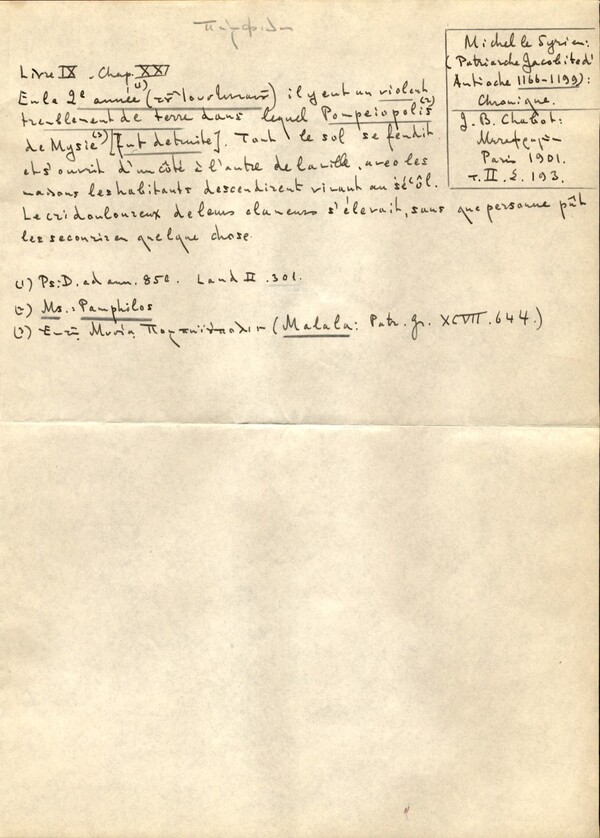 Michel le Syrien:
(Patriarche Jacobite d'
Antioche 1166-1199):
Chronique.
J. B. Chabot:
Paris 1901.
T. II. Σ. 193.
Livre IX . Chap. XXI
En la 2e année (1) (τοῦ Ἰουστινιανοῦ) il y eut un violent
tremblement de terre dans lequel Pompeiopolis (2)
de Mysie (3) [fut détruite]. Tout le sol se fendit
et s'ouvrit d'un côté à l'autre de la ville, avec les
maisons les habitants descendirent vivant au
Le cri douloureux de leurs clameurs s'élevait, sans que personne pût
les secourir en quelque chose.
(1) Ps: D. ad ann. 850. Land II . 301.
(2) Ms.: Pamphilos
(3) (Malala: Patr. gr. XCVII. 644.)